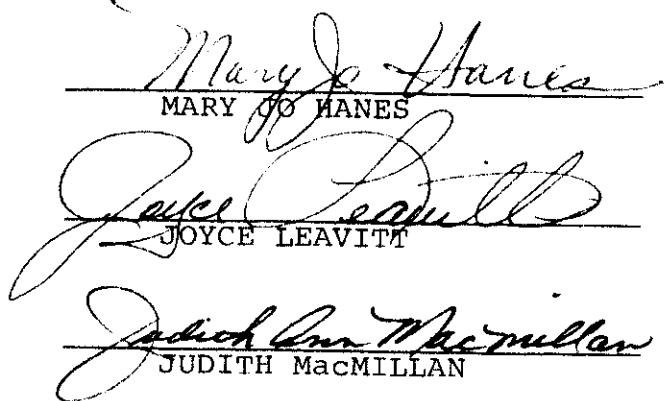 Mary Jo Hanes
MARY JO HANES
Joyce Leavitt
JOYCE LEAVITT
Judith Ann MacMillan
JUDITH MacMILLAN